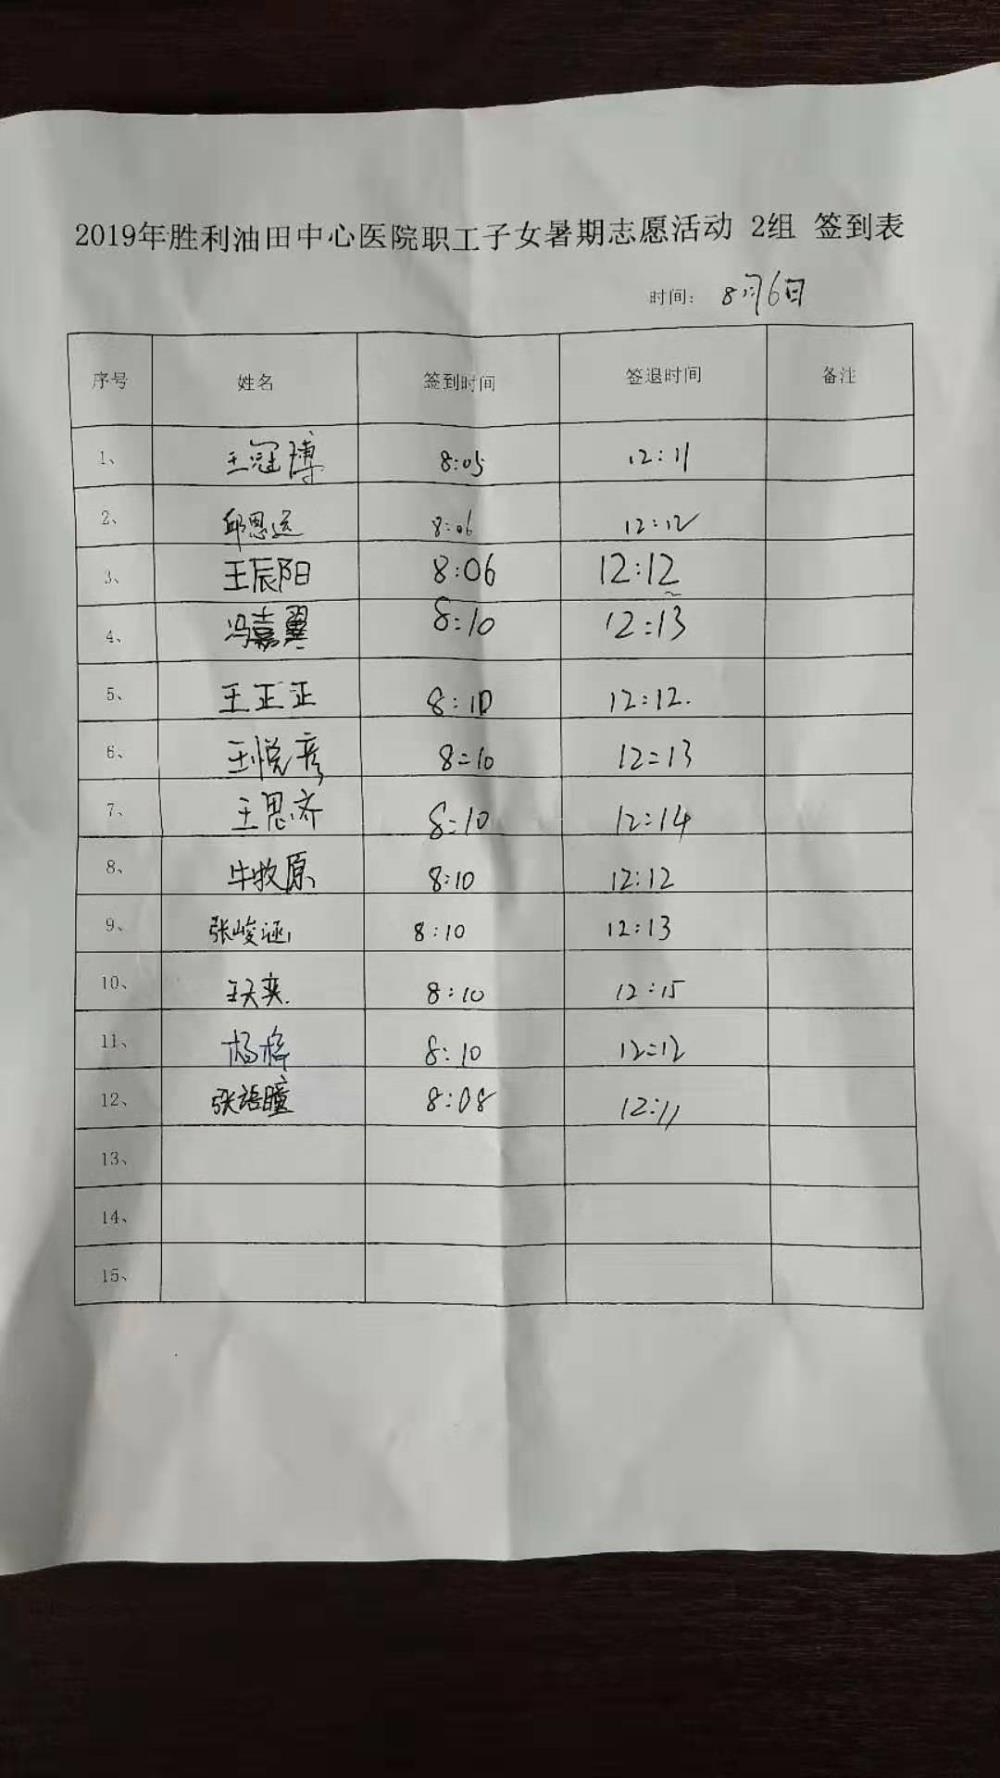 2019年胜利油田中心医院职工子女暑期志愿活动 2组 签到表
时间: 8月6日
序号 姓名 签到时间 签退时间 备注
1、 王冠博 8:05 12:11
2、 邱恩远 8:06 12:12
3、 王辰阳 8:06 12:12
4、 冯嘉翼 8:10 12:13
5、 王正正 8:10 12:12.
6、 王悦彦 8:10 12:13
7、 王思齐 8:10 12:14
8、 牛牧原 8:10 12:12
9、 张峻涵 8:10 12:13
10、 王天奕. 8:10 12:15
11、 杨 8:10 12:12
12、 张语瞳 8:08 12:11
13、
14、
15、